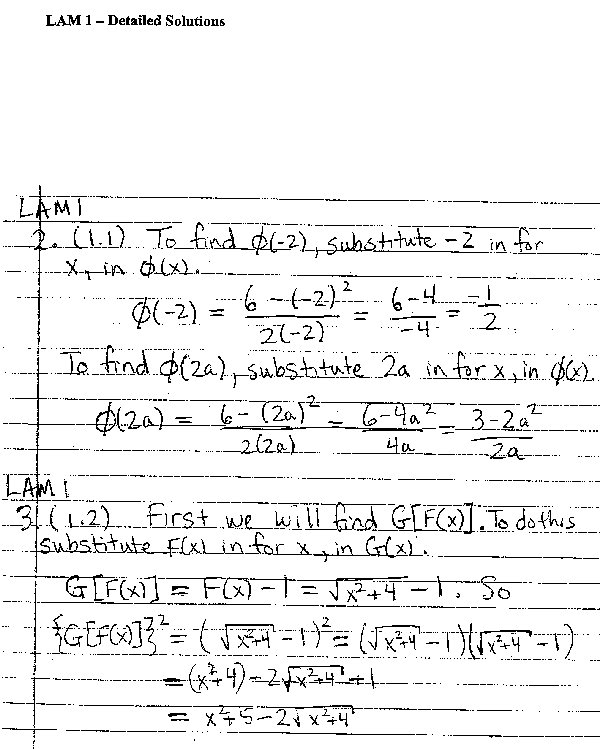 LAM 1 – Detailed Solutions
LAM 1
2. (1.1) To find ϕ(-2), substitute -2 in for
x, in ϕ(x).
ϕ(-2) = (6 - (-2)²)/(2(-2)) = (6-4)/(-4) = -1/2
To find ϕ(2a), substitute 2a in for x, in ϕ(x).
ϕ(2a) = (6-(2a)²)/(2(2a)) = (6-4a²)/(4a) = (3-2a²)/(2a)
LAM 1
3. (1.2) First we will find G[F(x)]. To do this
substitute F(x) in for x, in G(x).
G[F(x)] = F(x) - 1 = √(x²+4) - 1. So
{G[F(x)]}² = (√(x²+4) - 1)² = (√(x²+4) - 1)(√(x²+4) - 1)
= (x²+4) - 2√(x²+4) + 1
= x²+5 - 2√(x²+4)